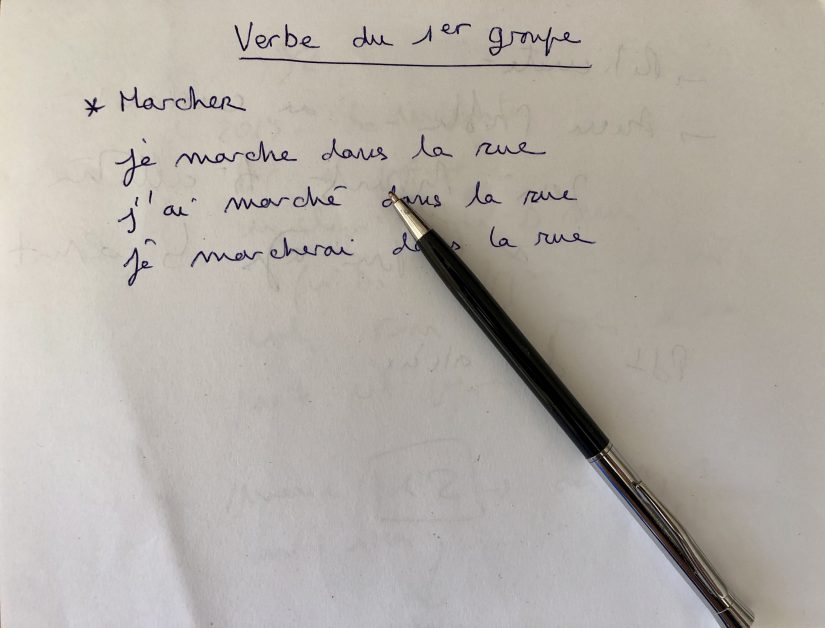 Verbe du 1er groupe
* Marcher
je marche dans la rue
j'ai marché dans la rue
je marcherai dans la rue